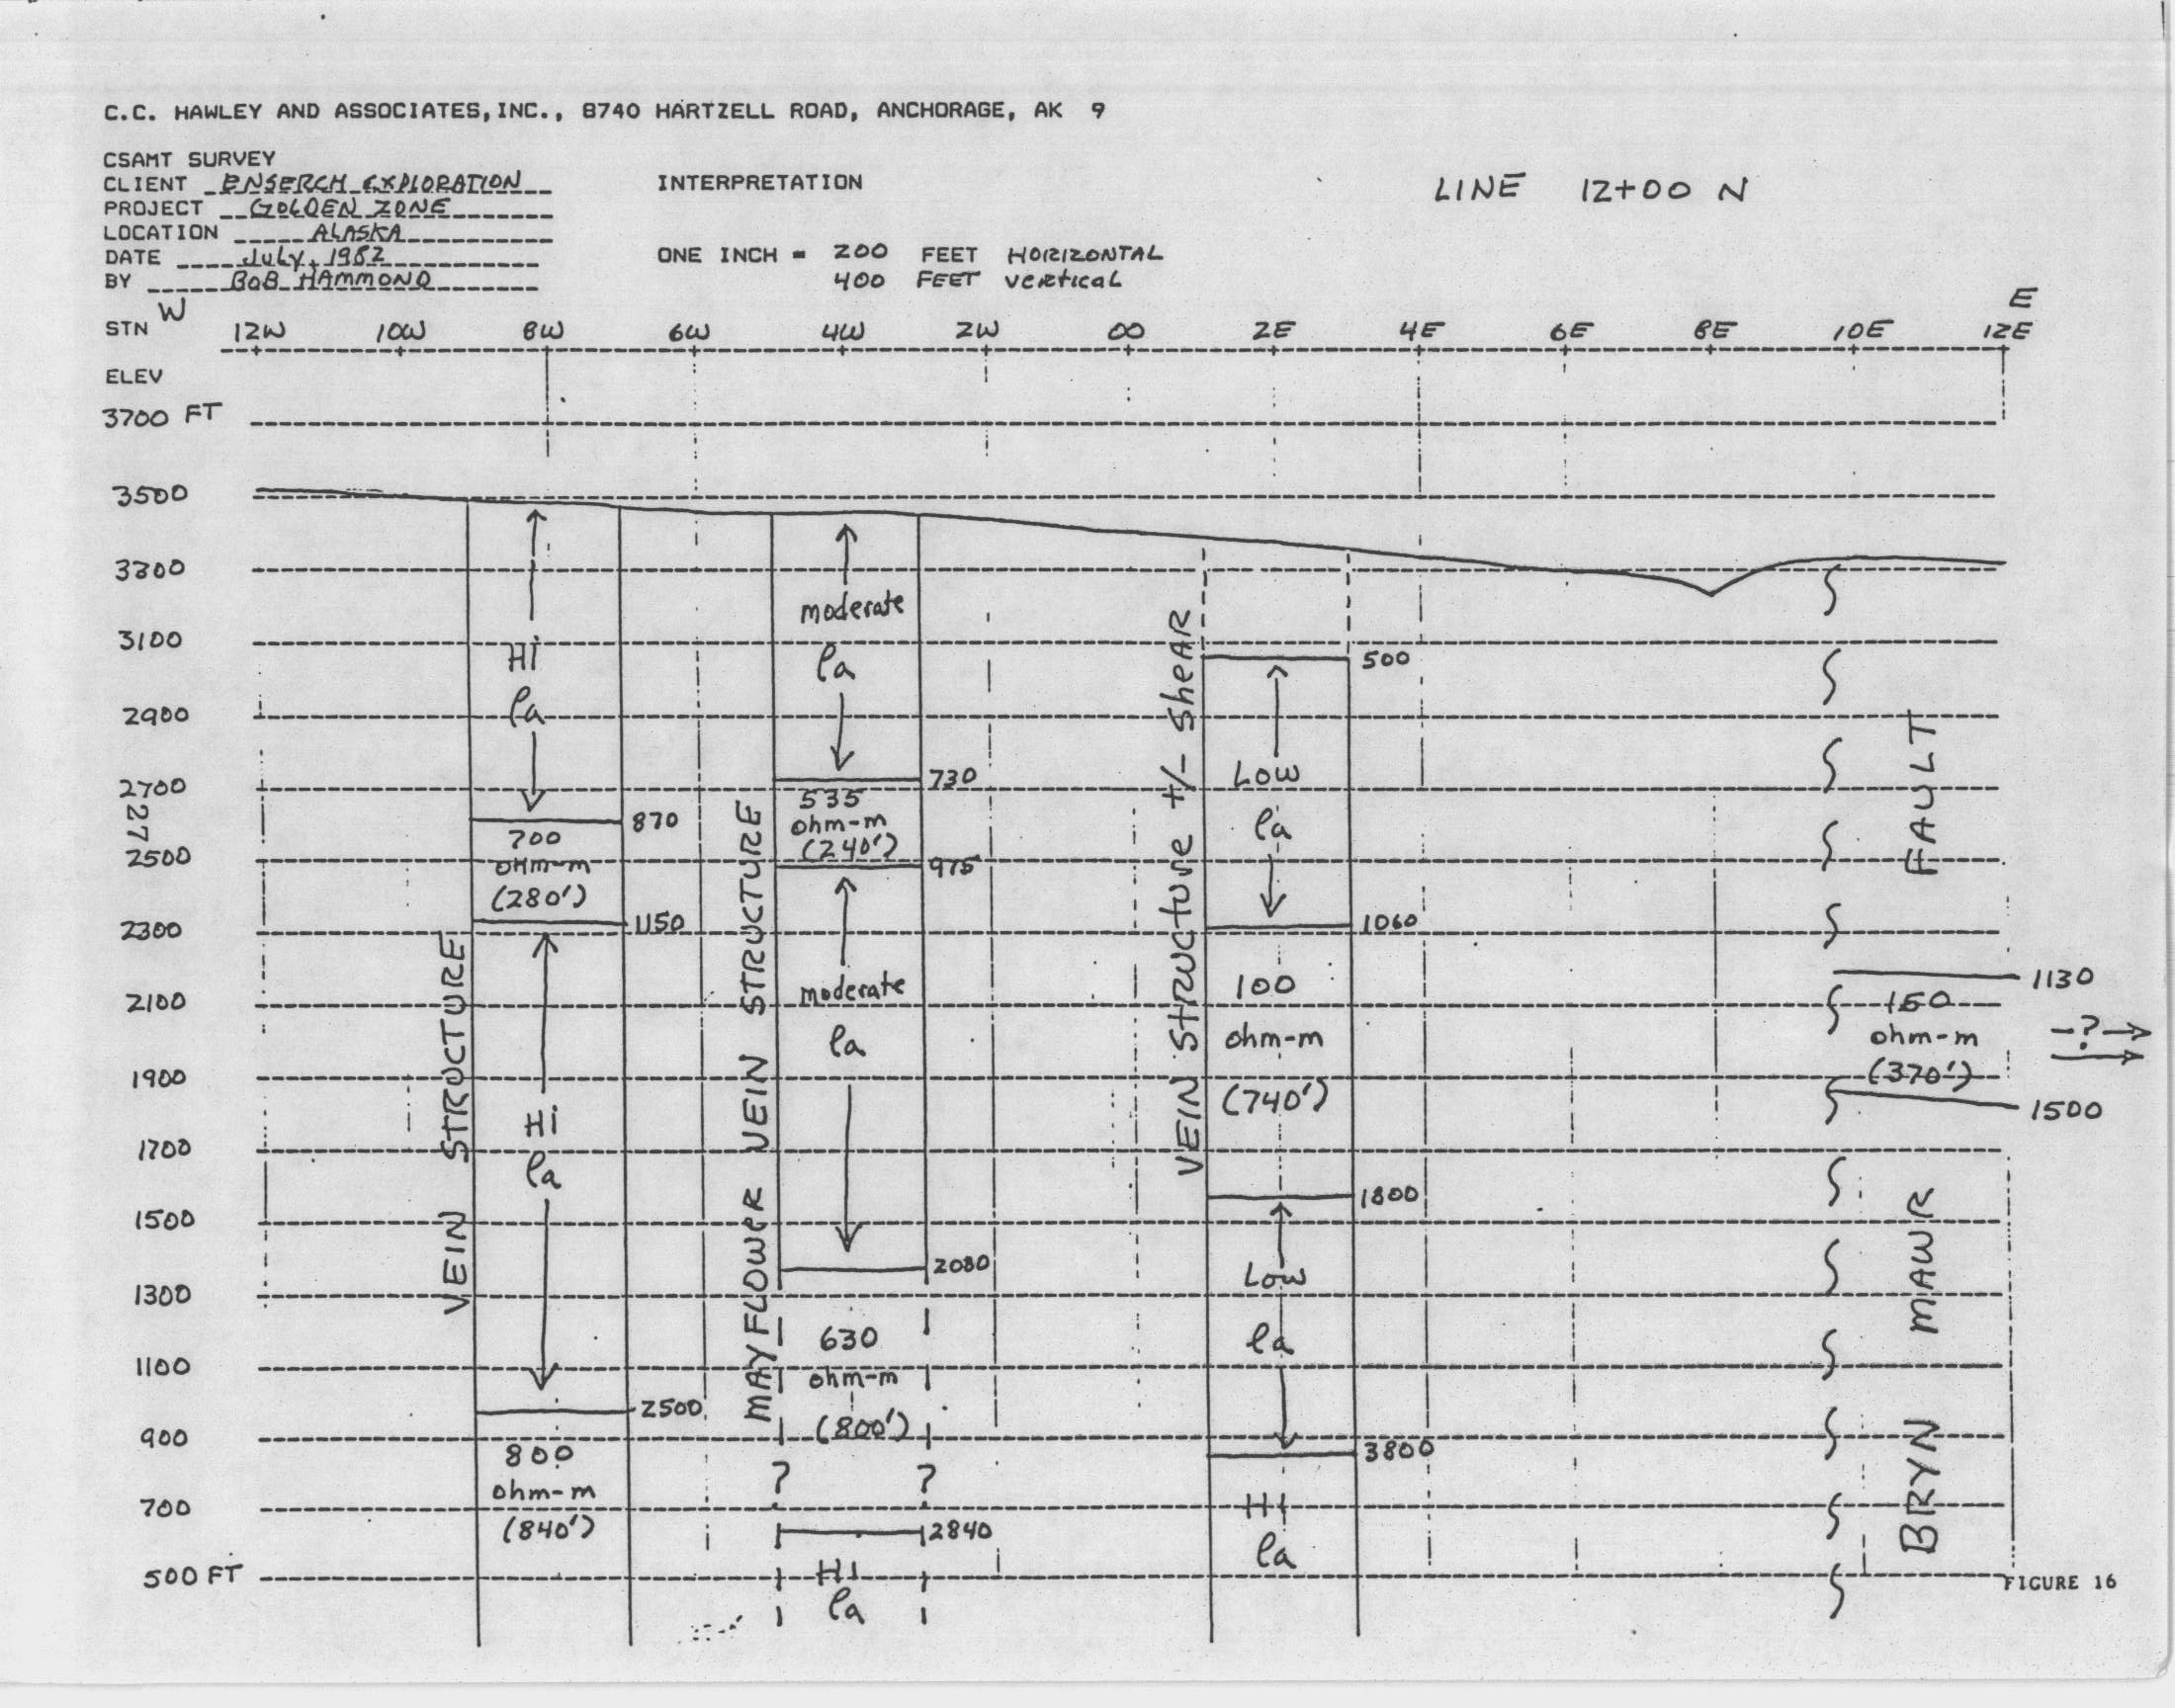 C.C. HAWLEY AND ASSOCIATES,INC., 8740 HARTZELL ROAD, ANCHORAGE, AK 9
CSAMT SURVEY
CLIENT ENSERCH EXPLORATION
PROJECT GOLDEN ZONE
LOCATION ALASKA
DATE July, 1982
BY BOB HAMMOND
INTERPRETATION
ONE INCH = 200 FEET HORIZONTAL
400 FEET vertical
LINE 12+00 N
W
E
STN 12W 10W 8W 6W 4W 2W 00 2E 4E 6E 8E 10E 12E
ELEV
3700 FT
3500
3300
3100
2900
2700
27
2500
2300
2100
1900
1700
1500
1300
1100
900
700
500 FT
VEIN STRUCTURE
Hi
ρa
870
700
ohm-m
(280')
1150
Hi
ρa
2500
800
ohm-m
(840')
MAYFLOWER VEIN STRUCTURE
moderate
ρa
730
535
ohm-m
(240')
975
moderate
ρa
2080
630
ohm-m
(800')
? ?
2840
HI
ρa
VEIN Structure +/- Shear
500
Low
ρa
1060
100
ohm-m
(740')
1800
Low
ρa
3800
HI
ρa
BRYN MAWR FAULT
1130
150
ohm-m
(370')
1500
?
FIGURE 16